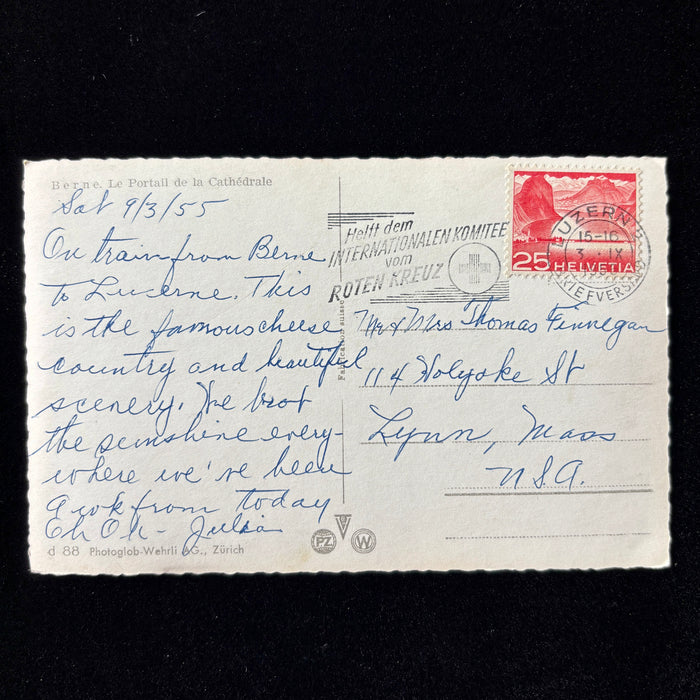 Berne. Le Portail de la Cathédrale
Sat 9/3/55
On train from Berne
to Lucerne. This
is the famous cheese
country and beautiful
scenery. We brot
the sunshine every-
where we've been
from today
Oh Oh - Julia
d 88 Photoglob-Wehrli AG., Zürich
Fabrication suisse
PZ
W
Helft dem
INTERNATIONALEN KOMITEE
vom
ROTEN KREUZ
LUZERN
15-16
3. IX
BRIEFVERSAND
25 HELVETIA
Mr & Mrs Thomas Finnegan
114 Holyoke St
Lynn, Mass
U.S.A.